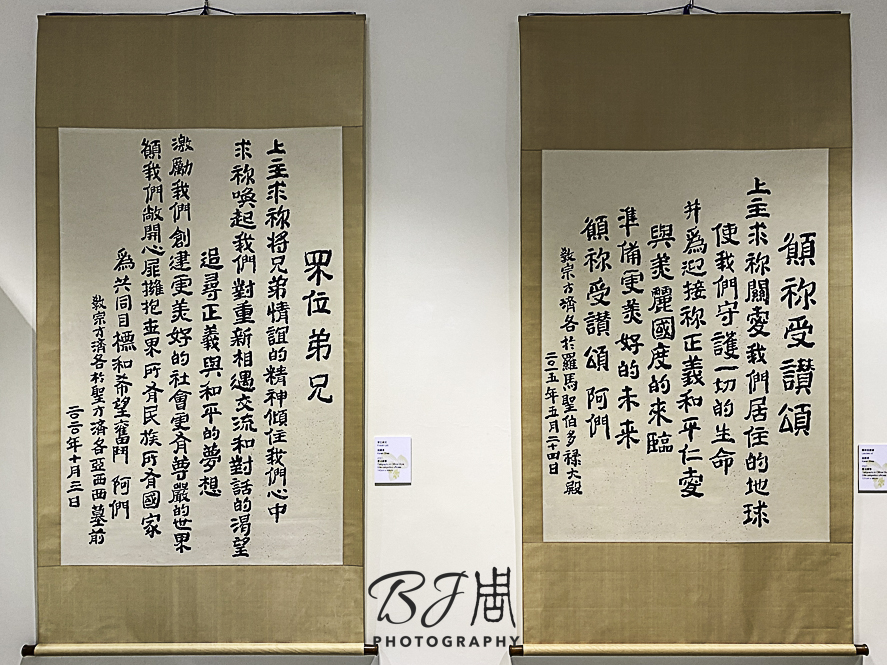 願祢受讚頌
上主求祢關愛我們居住的地球
使我們守護一切的生命
并爲迎接祢正義和平仁愛
與美麗國度的來臨
準備更美好的未來
願祢受讚頌 阿們
教宗方濟各於羅馬聖伯多祿大殿
二〇一五年五月二十四日
眾位弟兄
上主求祢將兄弟情誼的精神傾注我們心中
求祢喚起我們對重新相遇交流和對話的渴望
追尋正義與和平的夢想
激勵我們創建更美好的社會更有尊嚴的世界
願我們敞開心扉擁抱世界所有民族所有國家
爲共同目標和希望奮鬥 阿們
教宗方濟各於聖方濟各亞西西墓前
二〇二〇年十月三日
BJ周
PHOTOGRAPHY